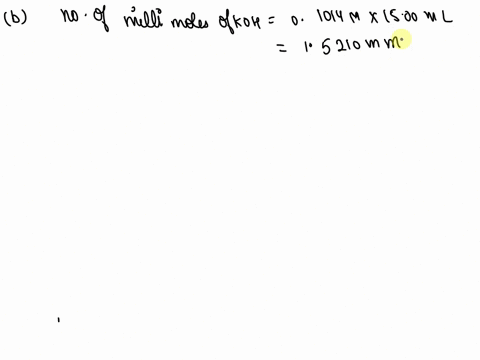 (b) no. of milli moles of KOH = 0. 1014 M x 15.00 m L
= 1.5210 m m.